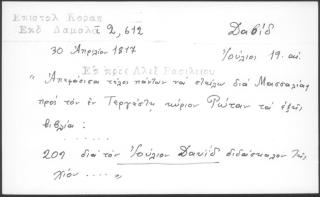 Επιστολ Κοραη
Εκδ Δαμαλᾶ 2, 612
Δαβίδ
30 Ἀπριλίου 1817
Ἰούλιος 19. αι.
Επ προς Αλεξ Βασιλειου
"Ἀπεφάσισα τέλος πάντων νὰ στείλω διὰ Μασσαλίας
πρὸς τὸν ἐν Τεργέστῃ κύριον Ρώταν τὰ ἑξῆς
βιβλία :
20 διὰ τὸν Ἰούλιον Δαβὶδ διδάσκαλον τῆς
Χίου .... "